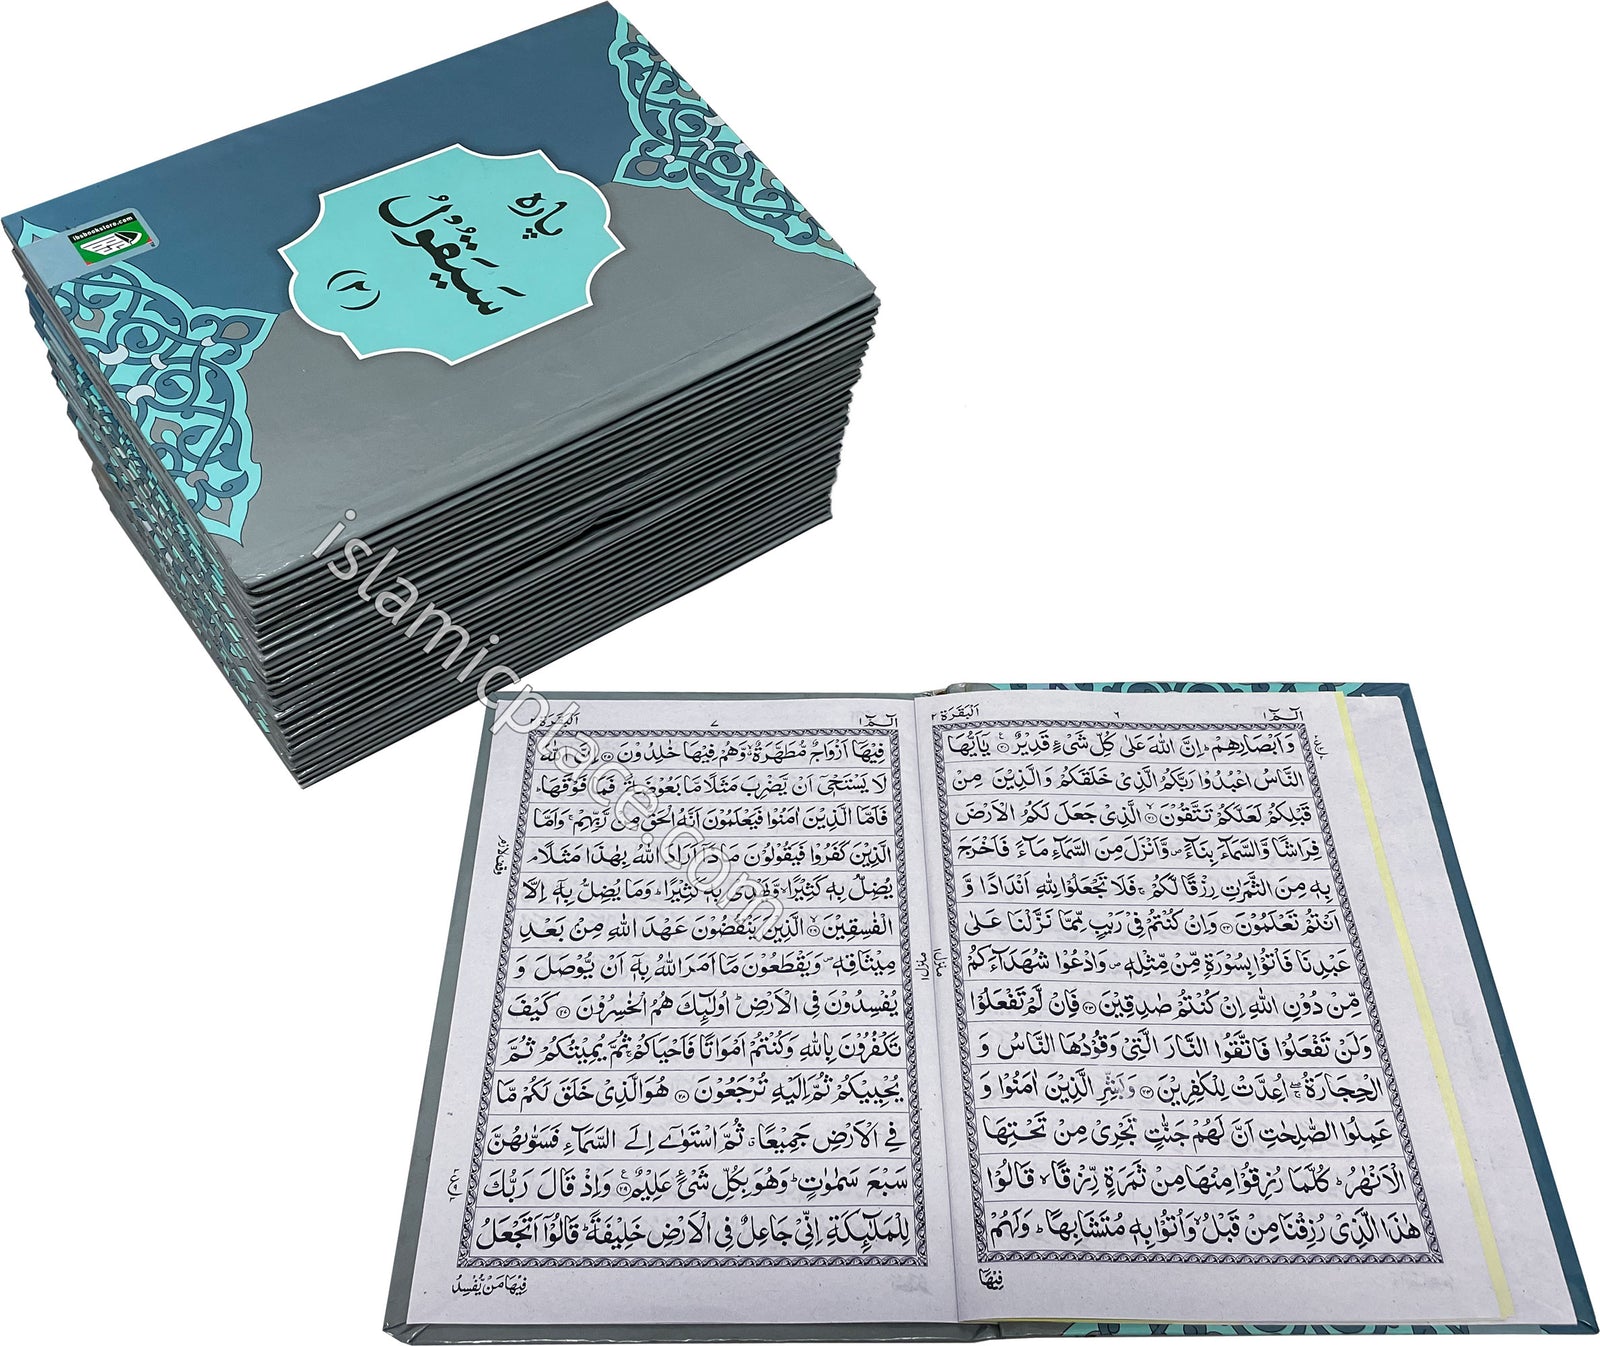 پاره
سَيَقُوْلُ
(٢)
ibsbookstore.com
islamicplace.com
الٓمّٓ ١
٦
اَلْبَقَرَة ٢
وَاَبْصَارِهِمْ ؕ اِنَّ اللّٰهَ عَلٰى كُلِّ شَیْءٍ قَدِیْرٌ ۝ یٰۤاَیُّهَا
النَّاسُ اعْبُدُوْا رَبَّكُمُ الَّذِیْ خَلَقَكُمْ وَالَّذِیْنَ مِنْ
قَبْلِكُمْ لَعَلَّكُمْ تَتَّقُوْنَ ۝ الَّذِیْ جَعَلَ لَكُمُ الْاَرْضَ
فِرَاشًا وَّالسَّمَآءَ بِنَآءً ۪ وَّاَنْزَلَ مِنَ السَّمَآءِ مَآءً فَاَخْرَجَ
بِهٖ مِنَ الثَّمَرٰتِ رِزْقًا لَّكُمْ ۚ فَلَا تَجْعَلُوْا لِلّٰهِ اَنْدَادًا وَّ
اَنْتُمْ تَعْلَمُوْنَ ۝۲۲ وَاِنْ كُنْتُمْ فِیْ رَیْبٍ مِّمَّا نَزَّلْنَا عَلٰى
عَبْدِنَا فَاْتُوْا بِسُوْرَةٍ مِّنْ مِّثْلِهٖ ۪ وَادْعُوْا شُهَدَآءَكُمْ
مِّنْ دُوْنِ اللّٰهِ اِنْ كُنْتُمْ صٰدِقِیْنَ ۝۲۳ فَاِنْ لَّمْ تَفْعَلُوْا
وَلَنْ تَفْعَلُوْا فَاتَّقُوا النَّارَ الَّتِیْ وَقُوْدُهَا النَّاسُ وَ
الْحِجَارَةُ ۖۚ اُعِدَّتْ لِلْكٰفِرِیْنَ ۝۲۴ وَبَشِّرِ الَّذِیْنَ اٰمَنُوْا وَ
عَمِلُوا الصّٰلِحٰتِ اَنَّ لَهُمْ جَنّٰتٍ تَجْرِیْ مِنْ تَحْتِهَا
الْاَنْهٰرُ ؕ كُلَّمَا رُزِقُوْا مِنْهَا مِنْ ثَمَرَةٍ رِّزْقًا ۙ قَالُوْا
هٰذَا الَّذِیْ رُزِقْنَا مِنْ قَبْلُ ۙ وَاُتُوْا بِهٖ مُتَشَابِهًا ؕ وَلَهُمْ
فِیْهَاۤ
منزل ١
الٓمّٓ ١
٧
اَلْبَقَرَة ٢
فِیْهَاۤ اَزْوَاجٌ مُّطَهَّرَةٌ ۙ وَّهُمْ فِیْهَا خٰلِدُوْنَ ۝ اِنَّ اللّٰهَ
لَا یَسْتَحْیٖۤ اَنْ یَّضْرِبَ مَثَلًا مَّا بَعُوْضَةً فَمَا فَوْقَهَا ؕ
فَاَمَّا الَّذِیْنَ اٰمَنُوْا فَیَعْلَمُوْنَ اَنَّهُ الْحَقُّ مِنْ رَّبِّهِمْ ۚ وَاَمَّا
الَّذِیْنَ كَفَرُوْا فَیَقُوْلُوْنَ مَاذَاۤ اَرَادَ اللّٰهُ بِهٰذَا مَثَلًا ۘ
یُضِلُّ بِهٖ كَثِیْرًا ۙ وَّیَهْدِیْ بِهٖ كَثِیْرًا ؕ وَمَا یُضِلُّ بِهٖۤ اِلَّا
الْفٰسِقِیْنَ ۝۲۶ الَّذِیْنَ یَنْقُضُوْنَ عَهْدَ اللّٰهِ مِنْۢ بَعْدِ
مِیْثَاقِهٖ ۪ وَیَقْطَعُوْنَ مَاۤ اَمَرَ اللّٰهُ بِهٖۤ اَنْ یُّوْصَلَ وَ
یُفْسِدُوْنَ فِی الْاَرْضِ ؕ اُولٰٓئِكَ هُمُ الْخٰسِرُوْنَ ۝۲۷ كَیْفَ
تَكْفُرُوْنَ بِاللّٰهِ وَكُنْتُمْ اَمْوَاتًا فَاَحْیَاكُمْ ۚ ثُمَّ یُمِیْتُكُمْ ثُمَّ
یُحْیِیْكُمْ ثُمَّ اِلَیْهِ تُرْجَعُوْنَ ۝۲۸ هُوَ الَّذِیْ خَلَقَ لَكُمْ مَّا
فِی الْاَرْضِ جَمِیْعًا ۗ ثُمَّ اسْتَوٰۤى اِلَى السَّمَآءِ فَسَوّٰىهُنَّ
سَبْعَ سَمٰوٰتٍ ؕ وَهُوَ بِكُلِّ شَیْءٍ عَلِیْمٌ ۝۲۹ وَاِذْ قَالَ رَبُّكَ
لِلْمَلٰٓئِكَةِ اِنِّیْ جَاعِلٌ فِی الْاَرْضِ خَلِیْفَةً ؕ قَالُوْۤا اَتَجْعَلُ
فِیْهَا مَنْ یُّفْسِدُ